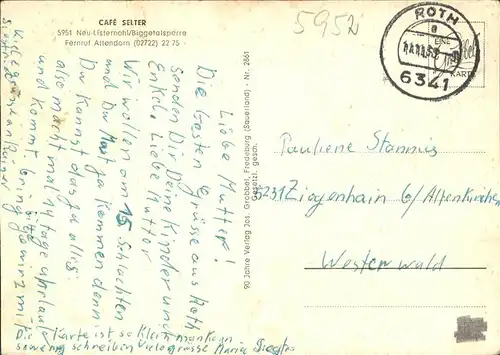 CAFÉ SELTER
5951 Neu-Listernohl/Biggetalsperre
Fernruf Attendorn (02722) 22 75
5952
ROTH
a
6341
EINE
KARTE
90 Jahre Verlag Jos. Grobbel, Fredeburg (Sauerland) - Nr. 2861
Gesetzl. gesch.
Liebe Mutter!
Die besten Grüsse aus Roth
Senden Dir Deine Kinder und
Enkel. Liebe Muttor
Wir wollen am 15 Schlachten
und Du must ja kommen denn
Du kannst das ja alles.
also macht mal 14 tage uhrlaub
und kommt. bring bitte
Siegfried
Die Karte ist so klein man kann
so wenig schreiben viele grüsse
Pauliene Stannus
5231 Ziegenhain b/Altenkirchen
Westerwald